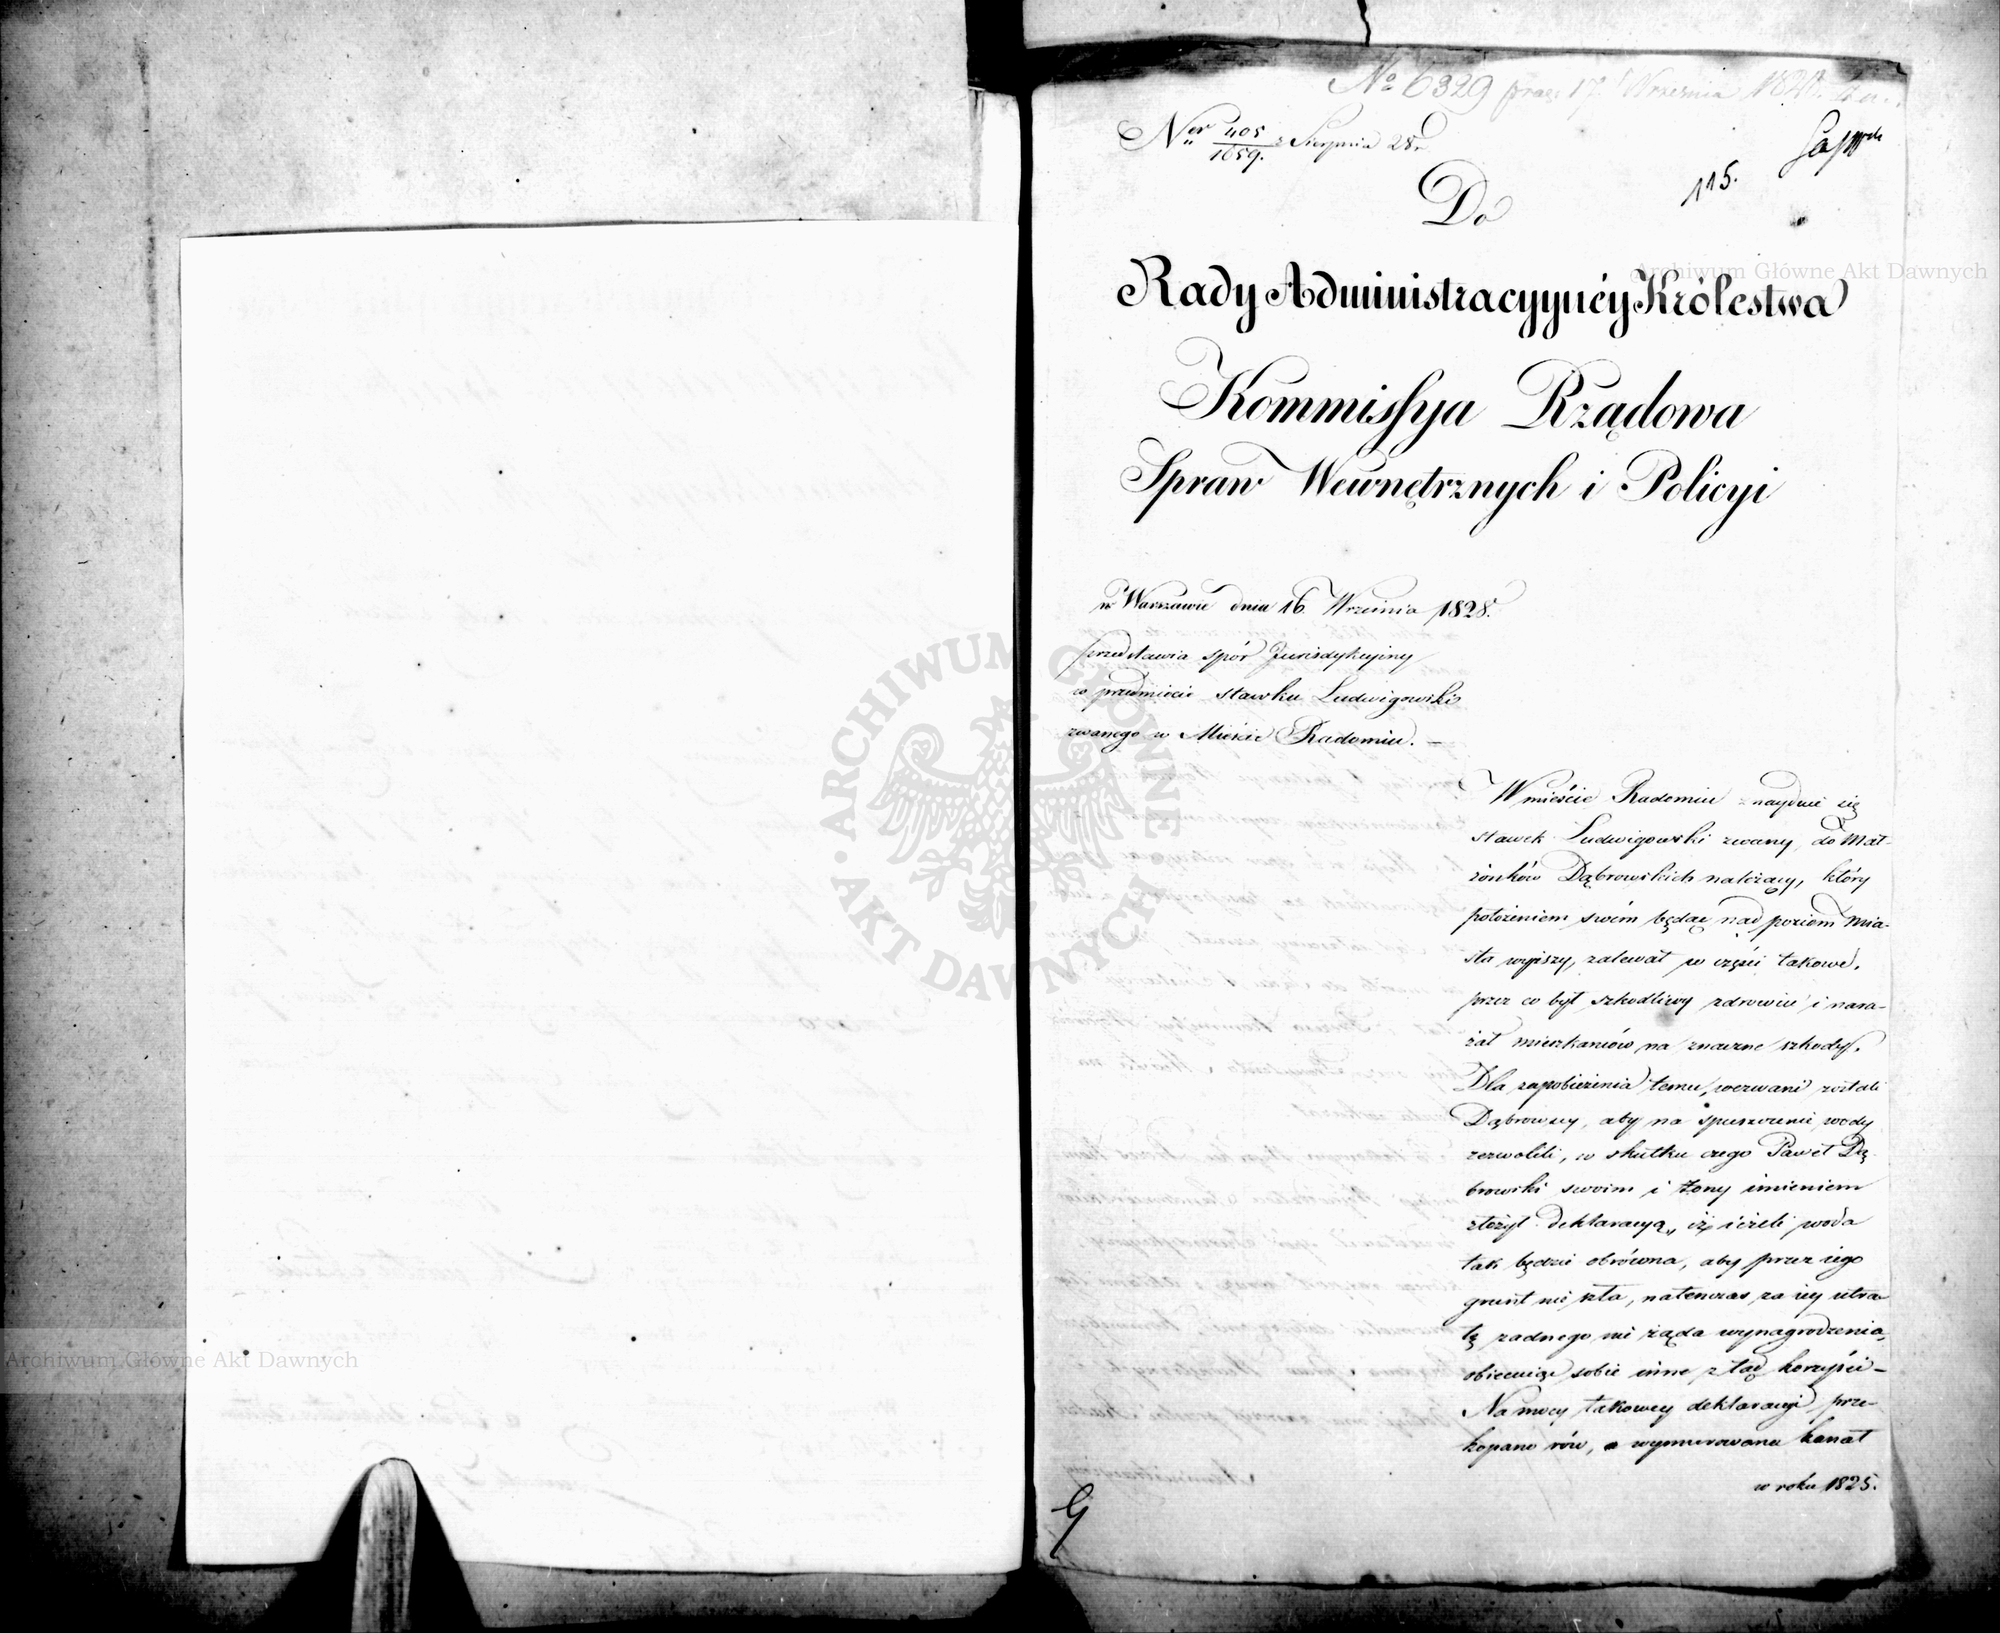 No 6329 praes 17 Września 1828.
Ner 405/1659. z Sierpnia 28r
115.
Do
Rady Administracyynéy Królestwa
Kommissyja Rządowa
Spraw Wewnętrznych i Policyi
w Warszawie dnia 16 Września 1828.
przedstawia spór Jurisdykcyiny
w przedmiocie stawku Ludwigowski
zwanego w Mieście Radomiu. —
W mieście Radomiu znayduie się
stawek Ludwigowski zwany, do Mał-
żonków Dąbrowskich należący, który
położeniem swém będąc nad poziom Mia-
sta wyższy, zalewał w części takowe,
przez co był szkodliwy zdrowiu i nara-
żał mieszkańców na znaczne szkody.
Dla zapobieżenia temu, wezwani zostali
Dąbrowscy, aby na spuszczenie wody
zezwolili, w skutku czego Paweł Dą-
browski swoim i żony imieniem
złożył deklaracyą, iż ieżeli woda
tak będzie obrócona, aby przez iego
grunt nie szła, natenczas za iey utra-
tę żadnego nie żąda wynagrodzenia,
obiecuiąc sobie inne z tąd korzyści —
Na mocy takowey deklaracyi prze-
kopano rów, a wymurowano kanał
w roku 1825.
Archiwum Główne Akt Dawnych
Archiwum Główne Akt Dawnych
ARCHIWUM GŁÓWNE • AKT DAWNYCH •